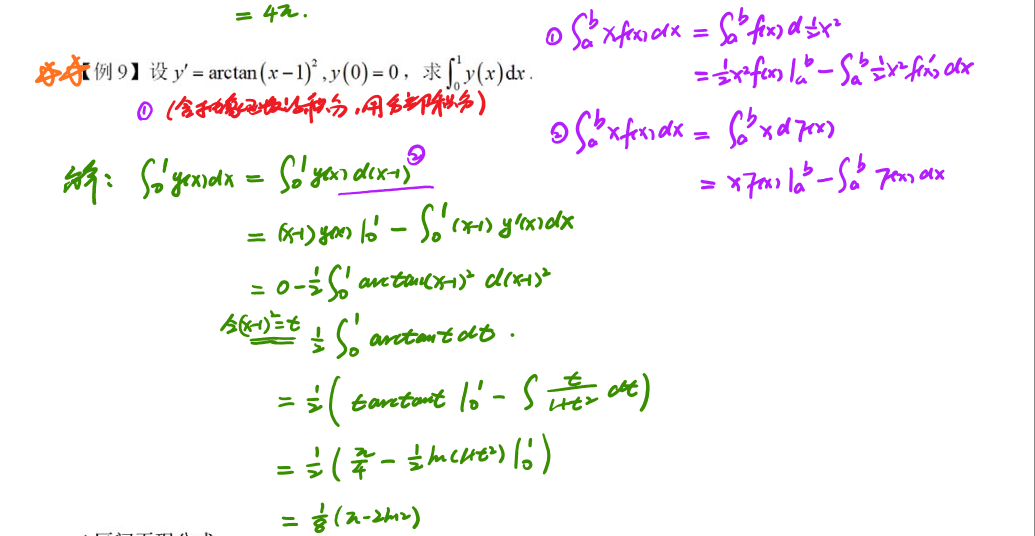 = 4π.
【例 9】设 y′ = arctan(x−1)², y(0) = 0, 求 ∫₀¹ y(x)dx.
① (含有抽象函数的积分,用分部积分)
解: ∫₀¹ y(x)dx = ∫₀¹ y(x) d(x-1) ②
= (x-1) y(x) |₀¹ − ∫₀¹ (x-1) y′(x)dx
= 0 − ½ ∫₀¹ arctan(x-1)² d(x-1)²
令(x-1)²=t ½ ∫₀¹ arctant dt .
= ½ ( tarctant |₀¹ − ∫ t/(1+t²) dt )
= ½ ( π/4 − ½ ln(1+t²) |₀¹ )
= ⅛ (π-2ln2)
① ∫ₐᵇ x f(x) dx = ∫ₐᵇ f(x) d ½x²
= ½x² f(x) |ₐᵇ − ∫ₐᵇ ½x² f′(x) dx
② ∫ₐᵇ x f(x) dx = ∫ₐᵇ x d F(x)
= x F(x) |ₐᵇ − ∫ₐᵇ F(x) dx